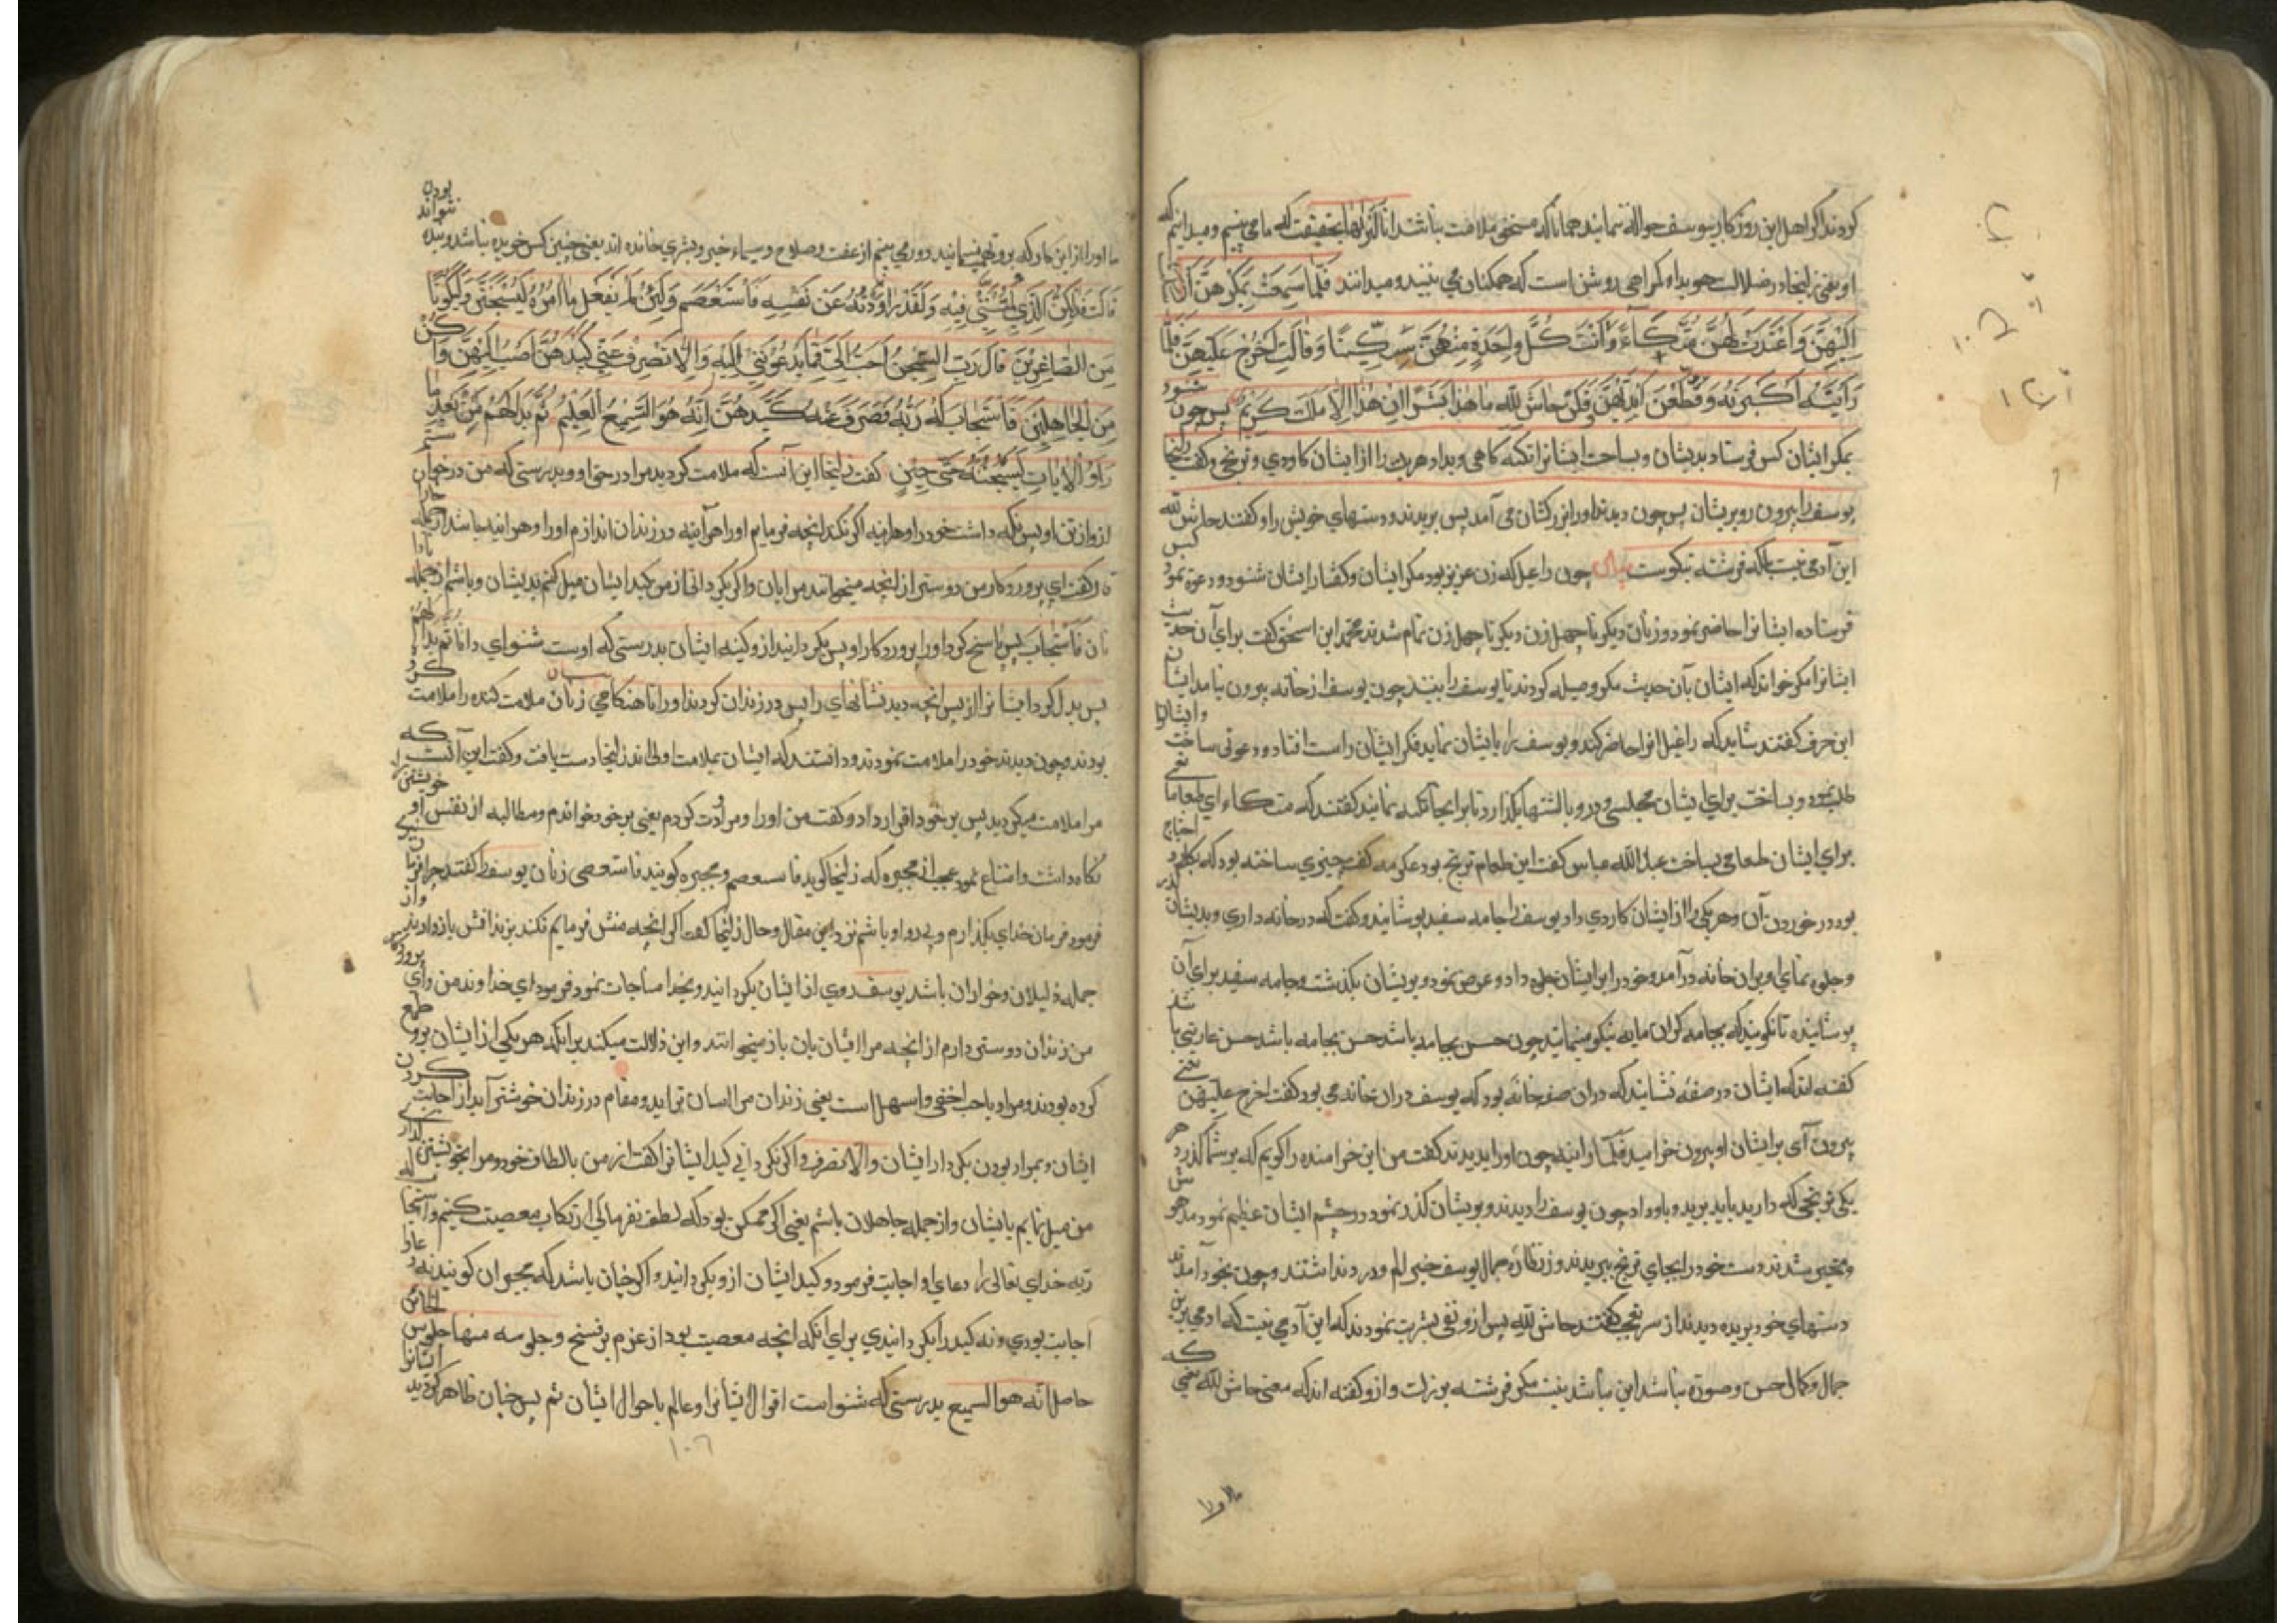 کردند اگر اهل این روزکار بیوسف حوالة نمایند همانا که مستحق ملامت نباشند انا لنراها بحقیقت که ما می بینیم و میدانیم که
او یعنی زلیخا در ضلالت هویدا و کمراهی روشن است که همکنان می بینند و میدانند فَلَمَّا سَمِعَتْ بِمَكْرِهِنَّ أَرْسَلَتْ
إِلَيْهِنَّ وَأَعْتَدَتْ لَهُنَّ مُتَّكَاءً وَآتَتْ كُلَّ وَاحِدَةٍ مِنْهُنَّ سِكِّينًا وَقَالَتِ اخْرُجْ عَلَيْهِنَّ فَلَمَّا
رَأَيْنَهُ أَكْبَرْنَهُ وَقَطَّعْنَ أَيْدِيَهُنَّ وَقُلْنَ حَاشَ لِلَّهِ مَا هَذَا بَشَرًا إِنْ هَذَا إِلَّا مَلَكٌ كَرِيمٌ پس چون شنود
بمکر ایشان کس فرستاد بدیشان و بساخت ایشانرا تکیه کاهی و بداد هریک را از ایشان کاردی و ترنجی و کفت زلیخا
یوسف را بیرون رو بریشان پس چون دیدند اورا بزرکشان می آمد پس بریدند دستهای خویش را و کفتند حاش لله
این آدمی نیست بلکه فرشته نیکوست چون راعیل که زن عزیز بود مکر ایشان و کفتار ایشان شنود و دعوة نمود کس
فرستاده ایشانرا حاضر نمود و زنان دیکر تا چهل زن دیکر تا چهل زن تمام شدند محمد ابن اسحق کفت برای آن حدیث
ایشانرا مکر خواند که ایشان بآن حدیث مکر و حیله کردند تا یوسف را بینند چون یوسف از خانه بیرون نیامد ایشان
این حرف کفتند شاید که راعیل انوا حاضر کند و یوسف را بایشان نماید فکر ایشان راست افتاد و دعوتی ساخت وایشانرا
طلب نمود و بساخت برای ایشان مجلسی و درو بالشتها بکذارد تا برانجا تکیه نمایند کفتند که متکاء ای طعاما یعنی
برای ایشان طعامی بساخت عبد الله عباس کفت این طعام ترنج بود عکرمه کفت چیزی ساخته بود که بکارد احتیاج
بود در خوردن آن و هریکی را از ایشان کاردی داد یوسف را جامه سفید پوشانید و کفت که در خانه داری و بدیشان
و جلوه نمای او بران خانه درآمد و خود را بر ایشان جلوه داد و عرض نمود و بریشان بکذشت و جامه سفید برای آن
پوشانیده تا نکویند که بجامه کران مایه نیکو مینماید چون حسن بجامه باشد حسن بجامه باشد حسن عاریتی باشد
کفته اند که ایشان در صفه نشاند که دران صفه خانه بود که یوسف دران خانه می بود کفت اخرج علیهن یعنی
بیرون آی بر ایشان او بیرون خرامید فلما راینه چون اورا بدیدند کفت من این خرامنده را کویم که بر شما کذرد هر
یکی ترنجی که دارید باید برید و باو داد چون یوسف را دیدند و بریشان کذر نمود در چشم ایشان عظیم نمود مدهوش
و متحیر شدند دست خود را بجای ترنج ببریدند و ز نظاره جمال یوسف خبر الم و درد نداشتند و چون بخود آمدند
دستهای خود بریده دیدند از سر تعجب کفتند حاش لله پس ازو نفی بشریت نمودند که این آدمی نیست که ادمی برین
جمال و کمال حسن و صورة نباشد این نباشد نیست مکر فرشته بزرک و ازو کفته اند که معنی حاش لله یعنی که
ما اورا از این کار که برو تهمت میسانید دور می بینم از عفت و صلاح و سیماء خیر و بشری خوانده اند یعنی چنین کس خریده نباشد و بنده نتواند بودن
قَالَتْ فَذَلِكُنَّ الَّذِي لُمْتُنَّنِي فِيهِ وَلَقَدْ رَاوَدْتُهُ عَنْ نَفْسِهِ فَاسْتَعْصَمَ وَلَئِنْ لَمْ يَفْعَلْ مَا آمُرُهُ لَيُسْجَنَنَّ وَلَيَكُونًا
مِنَ الصَّاغِرِينَ قَالَ رَبِّ السِّجْنُ أَحَبُّ إِلَيَّ مِمَّا يَدْعُونَنِي إِلَيْهِ وَإِلَّا تَصْرِفْ عَنِّي كَيْدَهُنَّ أَصْبُ إِلَيْهِنَّ وَأَكُنْ
مِنَ الْجَاهِلِينَ فَاسْتَجَابَ لَهُ رَبُّهُ فَصَرَفَ عَنْهُ كَيْدَهُنَّ إِنَّهُ هُوَ السَّمِيعُ الْعَلِيمُ ثُمَّ بَدَا لَهُمْ مِنْ بَعْدِ مَا
رَأَوُا الْآيَاتِ لَيَسْجُنُنَّهُ حَتَّى حِينٍ کفت زلیخا این آنست که ملامت کردید مرا در حق او و بدرستی که من در خواستم
ازو از تن او پس نکه داشت خود را و هراینه اکر نکند انچه فرمایم اورا هرآینه در زندان اندازم اورا و هراینه باشد از جمله
کفت ای پروردکار من زندان دوستر از انچه میخوانند مرا بان و اکر نکردانی از من کید ایشان میل کنم بدیشان و باشم از جمله
فاستجاب پس پاسخ کرد اورا پروردکار او پس بکردانید ازو کینه ایشان بدرستی که اوست شنوای دانا ثم بدا لهم
پس بدل کرد ایشانرا از پس انچه دید نشانهای را پس در زندان کردند اورا تا هنکامی زنان ملامت کننده را ملامت کرد
بودند و چون دیدند خود را ملامت نمودند و دانستند که ایشان بملامت اولی اند زلیخا دست یافت و کفت این آنست که
مرا ملامت میکردید پس بر خود اقرار داد و کفت من اورا ومراودت کردم یعنی بر خود خواندم و مطالبه از نفس او خویشتن را
نکاه داشت و امتناع نمود عجب از مجبره که زلیخا کوید فاستعصم و مجبره کویند فاستعصی زنان یوسف را کفتند چرا فرمان
فرمود فرمان خدای بکذارم و پی رو او باشم نزد این مقال و حال زلیخا کفت اکر انچه منش فرمایم نکند بزندانش بازدارند واز
جمله ذلیلان و خواران باشد یوسف روی از ایشان بکردانید و بخدا مناجات نمود فرمود ای خداوند من و ای پروردکار
من زندان دوستر دارم از انچه مرا ایشان بان باز میخوانند و این دلالت میکند برانکه هریکی از ایشان برو طمع
کرده بودند و مراد باحب اخف و اسهل است یعنی زندان مرا اسان تر اید و مقام در زندان خوشتر آید از اجابت کردن
ایشان و بمراد بودن بکردار ایشان و الا تصرف و اکر نکردانی کید ایشانرا کفت از من بالطاف خود و مرا بخویشتن کذاری
من میل نمایم بایشان و از جمله جاهلان باشم یعنی اکر ممکن بود که لطف نفرمائی ارتکاب معصیت کنیم فاستجاب له
ربه خدای تعالی را دعای او اجابت فرمود و کید ایشان ازو بکردانید و اکر چنان باشد که مجبران کویند نه دعا را
اجابت بودی و نه کید را بکردانیدی برای انکه انچه معصیت بود از عزم بر فسخ و جلوسه منها جلوس الخائن
حاصل انه هو السمیع بدرستی که شنواست اقوال ایشانرا و عالم باحوال ایشان ثم پس چنان ظاهر کردید ایشانرا
١٠٦